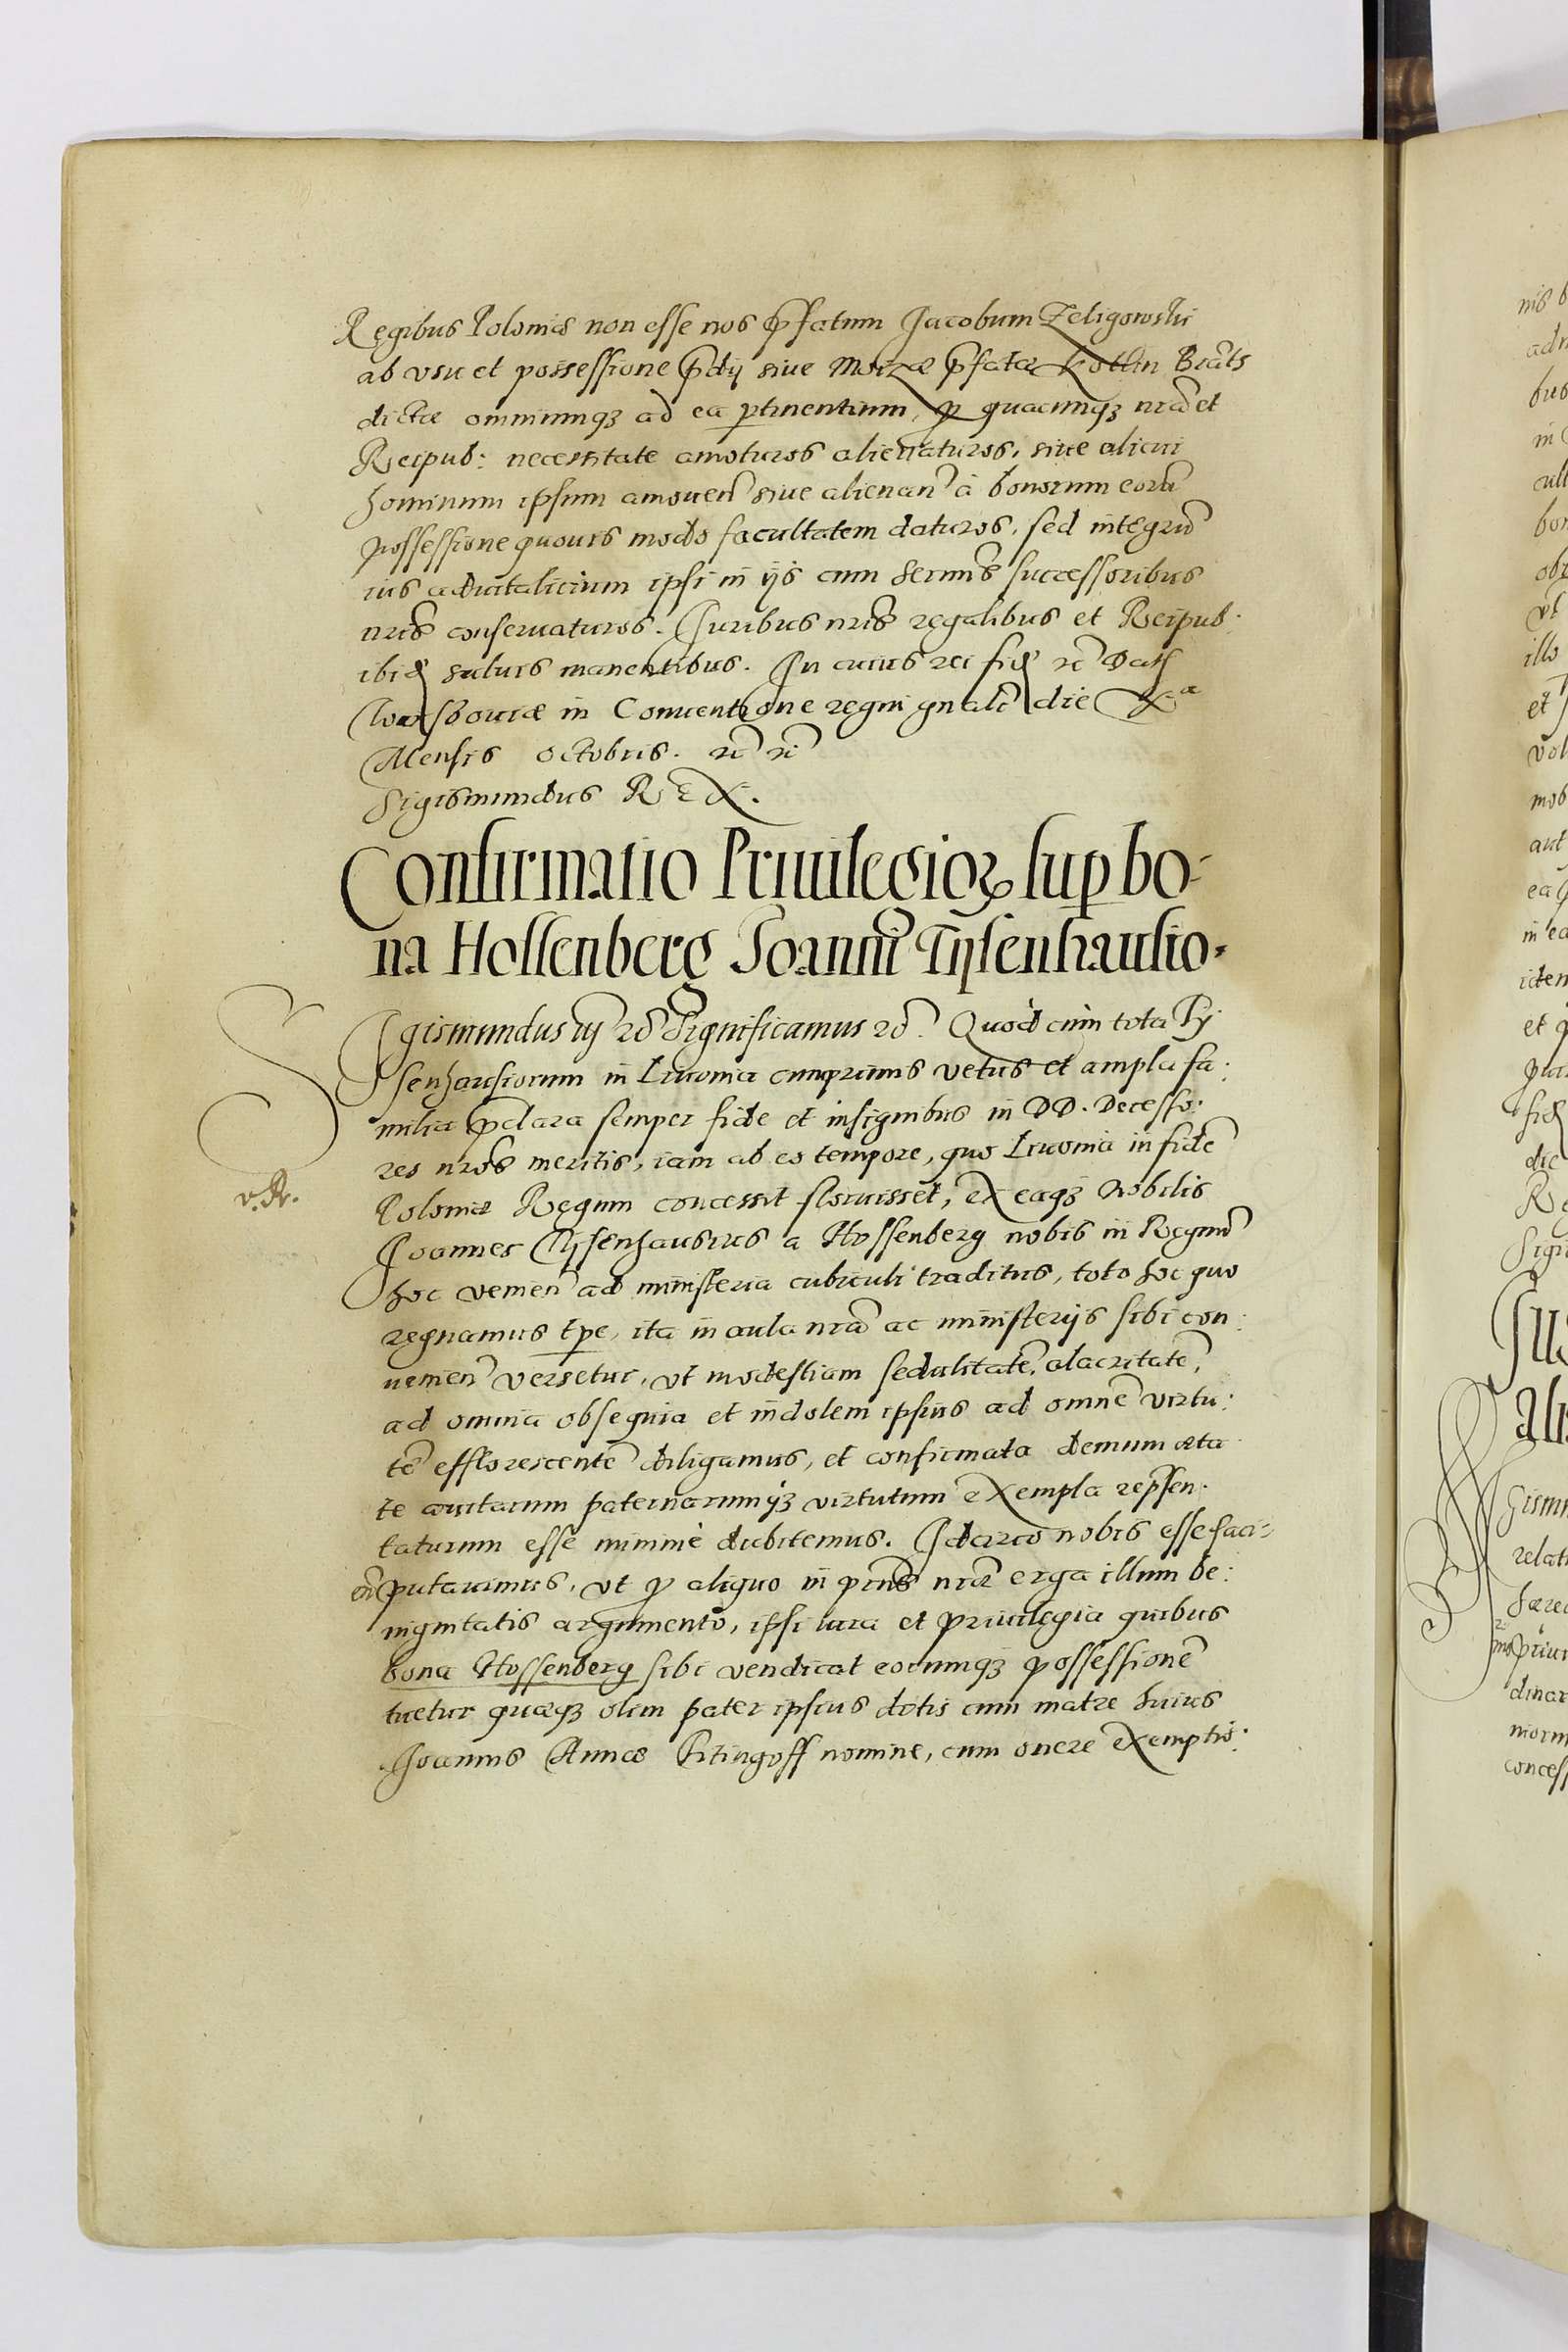 Regibus Poloniæ non esse nos pfatum Jacobum Zeligowski
ab vsu et possessione pdij siue Moizæ pfatæ Kotlin Brats
dictæ omniumqz ad ea ptinentium, p quacunqz nrã et
Reipub: necessitate amoturos alienaturos, siue alicui
hominum ipsum amouen siue alienan à bonorum eorũ
possessione quouis modo facultatem daturos, sed integrũ
ius aduitalicium ipsi in ijs cum Sermis successoribus
nris conseruaturos. Juribus nris regalibus et Reipub.
ibid saluis manentibus. In cuius rei fid rc Dat
Warsouiæ in Conuentione regni gnali die Xa
Mensis Octobris. rc rc
Sigismundus REX.
Confirmatio Priuilegioz sup bo-
na Hossenberg Joanni Tysenhausio.
Sigismundus iij rc Significamus rc. Quod cum tota Ty
senhausiorum in Liuonia cumprimis vetus et ampla fa:
milia pclara semper fide et insignibus in DD. Decesso:
res nros meritis, iam ab eo tempore, quo Liuonia in fidẽ
Poloniæ Regum concessit floruisset, ex eaqz Nobilis
Joannes Tysenhausius a Hossenberg nobis in Regnũ
hoc venien ad ministeria cubiculi traditus, toto hoc quo
regnamus tpe, ita in aula nrã ac ministerijs sibi con:
uenien versetur, vt modestiam sedulitatẽ, alacritatẽ,
ad omnia obsequia et indolem ipsius ad omnẽ virtu:
tẽ efflorescentẽ diligamus, et confirmata demum æta
te auitarum paternarumqz virtutum exempla repsen:
taturum esse minime dubitemus. Idcirco nobis esse faci-
en putauimus, vt p aliquo in pnis nræ erga illum be:
nignitatis argumento, ipsi iura et priuilegia quibus
bona Hossenberg sibi vendicat eorumqz possessionẽ
tuetur quæqz olim pater ipsius dotis cum matre huius
Joannis Annæ Fitingoff nomine, cum onere exemptio:
v. R.